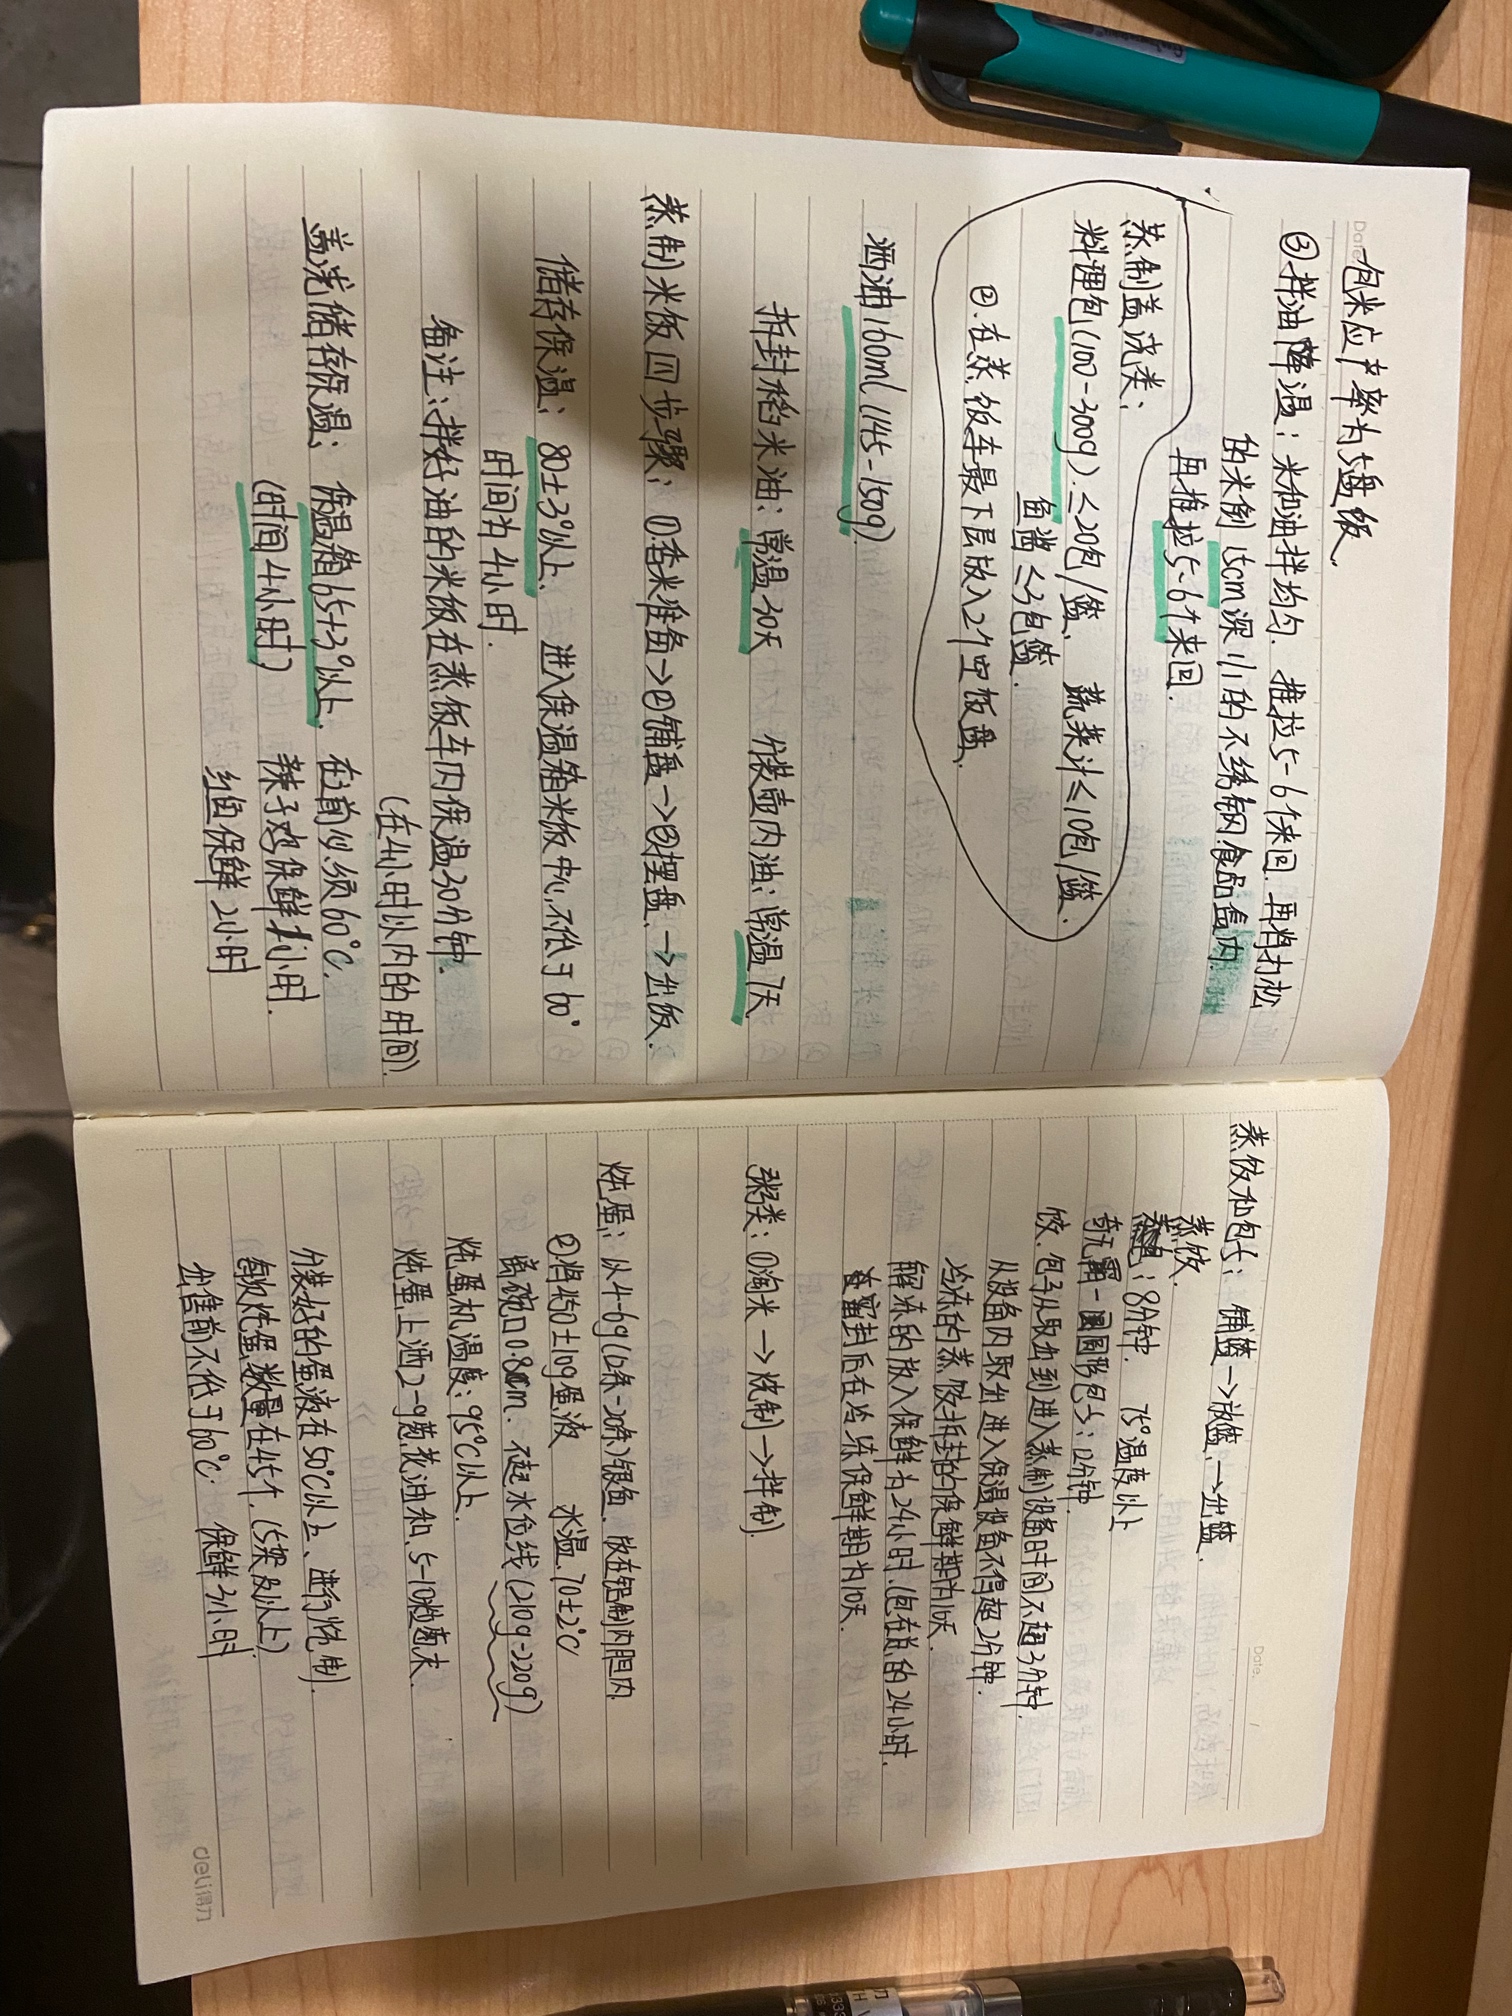 Date
包米应产率为5盘饭.
③拌油降温：米和油拌均匀. 推拉5-6个来回. 再将打松
的米倒15cm深 1/1的不绣钢食品盒内.
再推拉5-6个来回.
蒸制盖浇类：
料理包(100-300g).≤20包/篮、 蔬菜计≤10包/篮.
鱼滋≤3包篮.
②.在蒸饭车最下层放入2个空饭盘.
洒油160ml (145-150g)
拆封稻米油：常温30天 分装壶内油：常温7天
蒸制米饭四步骤：①香米准备→②铺盘→③摆盘.→出饭.
储存保温：80±3°以上、 进入保温箱米饭中心.不低于60°
时间为4小时.
备注：拌好油的米饭在蒸饭车内保温30分钟.
(在4小时以内的时间).
盖浇储存保温： 保温箱65+3°以上. 在售前必须60℃.
(时间4小时) 辣子鸡保鲜1小时.
鱼保鲜2小时
Date.
蒸饺和包子： 铺篮→放篮.→出篮.
蒸饺.
：8分钟. 75°温度以上
圆形包子：12分钟
饺.包子从取出到进入蒸制设备时间不超3分钟.
从设备内取出进入保温设备不得超2分钟.
冷冻的蒸饺拆封的保鲜期为10天.
解冻的放入保鲜为24小时.(包存的24小时.
密封后在冷冻保鲜期为10天.
粥类：①淘米→烧制→拌制.
炖蛋： 以4-6g(12条-20条)银鱼. 放在铝制内胆内.
②将210±10g蛋液 水温.70±2℃
离碗口0.8cm. 不超水位线(210g-220g)
炖蛋机温度：95℃以上.
炖蛋上洒2-9葱花油和.5-10粒葱末.
分装好的蛋液在50℃以上、进行炖制.
每次炖蛋数量在45个.(5架及以上)
出售前不低于60℃. 保鲜3小时
deli得力